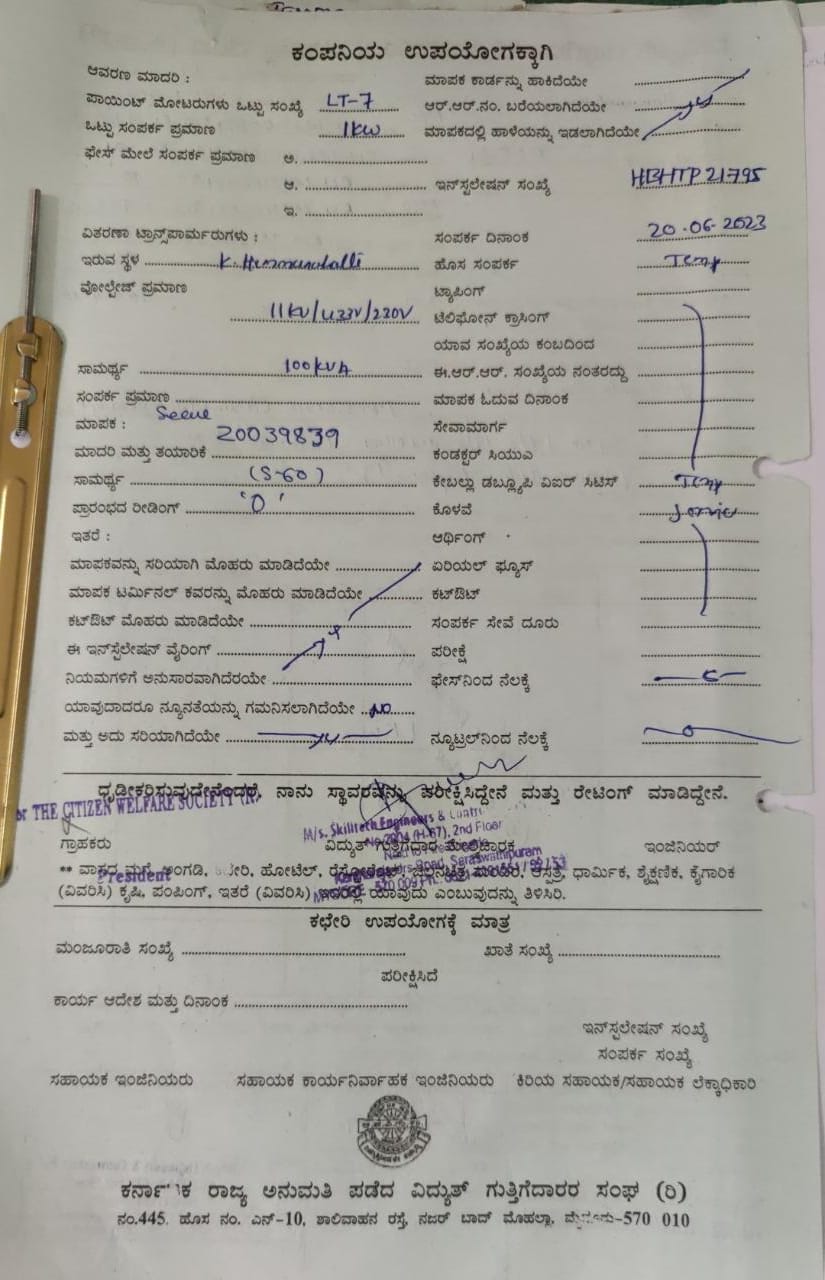 ಕಂಪನಿಯ ಉಪಯೋಗಕ್ಕಾಗಿ
ಆವರಣ ಮಾದರಿ : ಮಾಪಕ ಕಾರ್ಡನ್ನು ಹಾಕಿದೆಯೇ
ಪಾಯಿಂಟ್ ಮೋಟರುಗಳು ಒಟ್ಟು ಸಂಖ್ಯೆ LT-7 ಆರ್.ಆರ್.ನಂ. ಬರೆಯಲಾಗಿದೆಯೇ
ಒಟ್ಟು ಸಂಪರ್ಕ ಪ್ರಮಾಣ 1KW ಮಾಪಕದಲ್ಲಿ ಹಾಳೆಯನ್ನು ಇಡಲಾಗಿದೆಯೇ
ಫೇಸ್ ಮೇಲೆ ಸಂಪರ್ಕ ಪ್ರಮಾಣ ಅ.
ಆ. ಇನ್‌ಸ್ಟಲೇಷನ್ ಸಂಖ್ಯೆ HBHTP21795
ಇ.
ವಿತರಣಾ ಟ್ರಾನ್ಸ್‌ಪಾರ್ಮರುಗಳು : ಸಂಪರ್ಕ ದಿನಾಂಕ 20-06-2023
ಇರುವ ಸ್ಥಳ ಹೊಸ ಸಂಪರ್ಕ Temp
ವೋಲ್ಟೇಜ್ ಪ್ರಮಾಣ ಟ್ಯಾಪಿಂಗ್
11KV/433V/230V ಟೆಲಿಫೋನ್ ಕ್ರಾಸಿಂಗ್
ಯಾವ ಸಂಖ್ಯೆಯ ಕಂಬದಿಂದ
ಸಾಮರ್ಥ್ಯ 100KVA ಈ.ಆರ್.ಆರ್. ಸಂಖ್ಯೆಯ ನಂತರದ್ದು
ಸಂಪರ್ಕ ಪ್ರಮಾಣ ಮಾಪಕ ಓದುವ ದಿನಾಂಕ
ಮಾಪಕ : ಸೇವಾಮಾರ್ಗ
ಮಾದರಿ ಮತ್ತು ತಯಾರಿಕೆ 20039839 ಕಂಡಕ್ಟರ್ ಸಿಯುಎ
ಸಾಮರ್ಥ್ಯ (5-60) ಕೇಬಲ್ಲು ಡಬ್ಲ್ಯೂಪಿ ವಿಐರ್ ಸಿಟಿಸ್ Temp
ಪ್ರಾರಂಭದ ರೀಡಿಂಗ್ '0' ಕೊಳವೆ
ಇತರೆ : ಆರ್ಥಿಂಗ್
ಮಾಪಕವನ್ನು ಸರಿಯಾಗಿ ಮೊಹರು ಮಾಡಿದೆಯೇ ಏರಿಯಲ್ ಫ್ಯೂಸ್
ಮಾಪಕ ಟರ್ಮಿನಲ್ ಕವರನ್ನು ಮೊಹರು ಮಾಡಿದೆಯೇ ಕಟ್‌ಔಟ್
ಕಟ್‌ಔಟ್ ಮೊಹರು ಮಾಡಿದೆಯೇ ಸಂಪರ್ಕ ಸೇವೆ ದೂರು
ಈ ಇನ್‌ಸ್ಟೆಲೇಷನ್ ವೈರಿಂಗ್ ಪರೀಕ್ಷೆ
ನಿಯಮಗಳಿಗೆ ಅನುಸಾರವಾಗಿದೆರಯೇ ಫೇಸ್‌ನಿಂದ ನೆಲಕ್ಕೆ
ಯಾವುದಾದರೂ ನ್ಯೂನತೆಯನ್ನು ಗಮನಿಸಲಾಗಿದೆಯೇ NO
ಮತ್ತು ಅದು ಸರಿಯಾಗಿದೆಯೇ ನ್ಯೂಟ್ರಲ್‌ನಿಂದ ನೆಲಕ್ಕೆ
ಧೃಡೀಕರಿಸುವುದೇನೆಂದರೆ, ನಾನು ಸ್ಥಾವರವನ್ನು ಪರೀಕ್ಷಿಸಿದ್ದೇನೆ ಮತ್ತು ರೇಟಿಂಗ್ ಮಾಡಿದ್ದೇನೆ.
THE CITIZEN WELFARE SOCIETY (R)
M/s. Skilltech Engineers &
2nd Floor
ಗ್ರಾಹಕರು ವಿದ್ಯುತ್ ಗುತ್ತಿಗೆದಾರ ಮೇಲ್ವಿಚಾರಕ ಇಂಜಿನಿಯರ್
Road, Saraswathipuram
** ವಾಸದ ಮನೆ, ಅಂಗಡಿ, ಹೋಟೆಲ್, ಆಸ್ಪತ್ರೆ, ಧಾರ್ಮಿಕ, ಶೈಕ್ಷಣಿಕ, ಕೈಗಾರಿಕೆ
President
(ವಿವರಿಸಿ) ಕೃಷಿ, ಪಂಪಿಂಗ್, ಇತರೆ (ವಿವರಿಸಿ) ಇದರಲ್ಲಿ ಯಾವುದು ಎಂಬುವುದನ್ನು ತಿಳಿಸಿರಿ.
ಕಛೇರಿ ಉಪಯೋಗಕ್ಕೆ ಮಾತ್ರ
ಮಂಜೂರಾತಿ ಸಂಖ್ಯೆ ಖಾತೆ ಸಂಖ್ಯೆ
ಪರೀಕ್ಷಿಸಿದೆ
ಕಾರ್ಯ ಆದೇಶ ಮತ್ತು ದಿನಾಂಕ
ಇನ್‌ಸ್ಟಲೇಷನ್ ಸಂಖ್ಯೆ
ಸಂಪರ್ಕ ಸಂಖ್ಯೆ
ಸಹಾಯಕ ಇಂಜಿನಿಯರು ಸಹಾಯಕ ಕಾರ್ಯನಿರ್ವಾಹಕ ಇಂಜಿನಿಯರು ಕಿರಿಯ ಸಹಾಯಕ/ಸಹಾಯಕ ಲೆಕ್ಕಾಧಿಕಾರಿ
ಕರ್ನಾಟಕ ರಾಜ್ಯ ಅನುಮತಿ ಪಡೆದ ವಿದ್ಯುತ್ ಗುತ್ತಿಗೆದಾರರ ಸಂಘ (ರಿ)
ನಂ.445. ಹೊಸ ನಂ. ಎನ್-10, ಶಾಲಿವಾಹನ ರಸ್ತೆ, ನಜರ್ ಬಾದ್ ಮೊಹಲ್ಲಾ, ಮೈಸೂರು-570 010